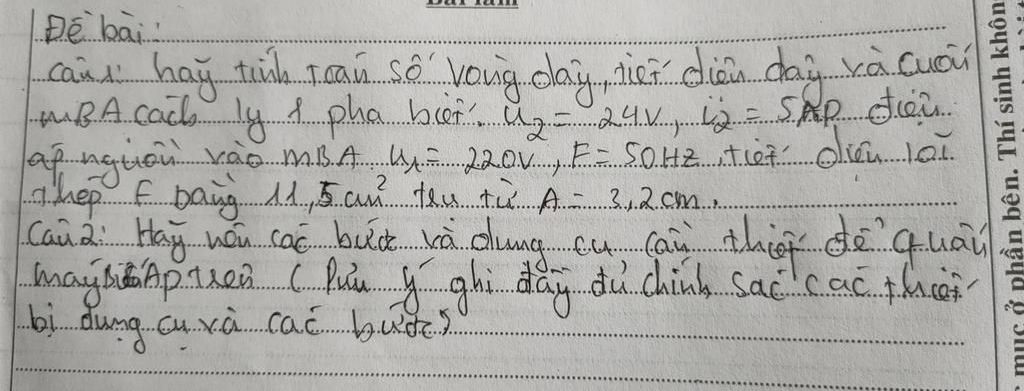 Bài làm
Đề bài:
Câu 1: hãy tính toán số vòng dây, tiết diện dây và cuối
MBA cách ly 1 pha biết. U2 = 24V, i2 = 5AP điện
áp nguồn vào MBA U1 = 220V, F = 50HZ, tiết diện lõi
thép F bằng 11,5 cm² từ A = 3,2 cm.
Câu 2: Hãy nêu các bước và dụng cụ cần thiết để quấn
máy biến Áp trên ( lưu ý ghi đầy đủ chính sác các thiết
bị dụng cụ và các bước)
mục ở phần bên. Thí sinh khôn